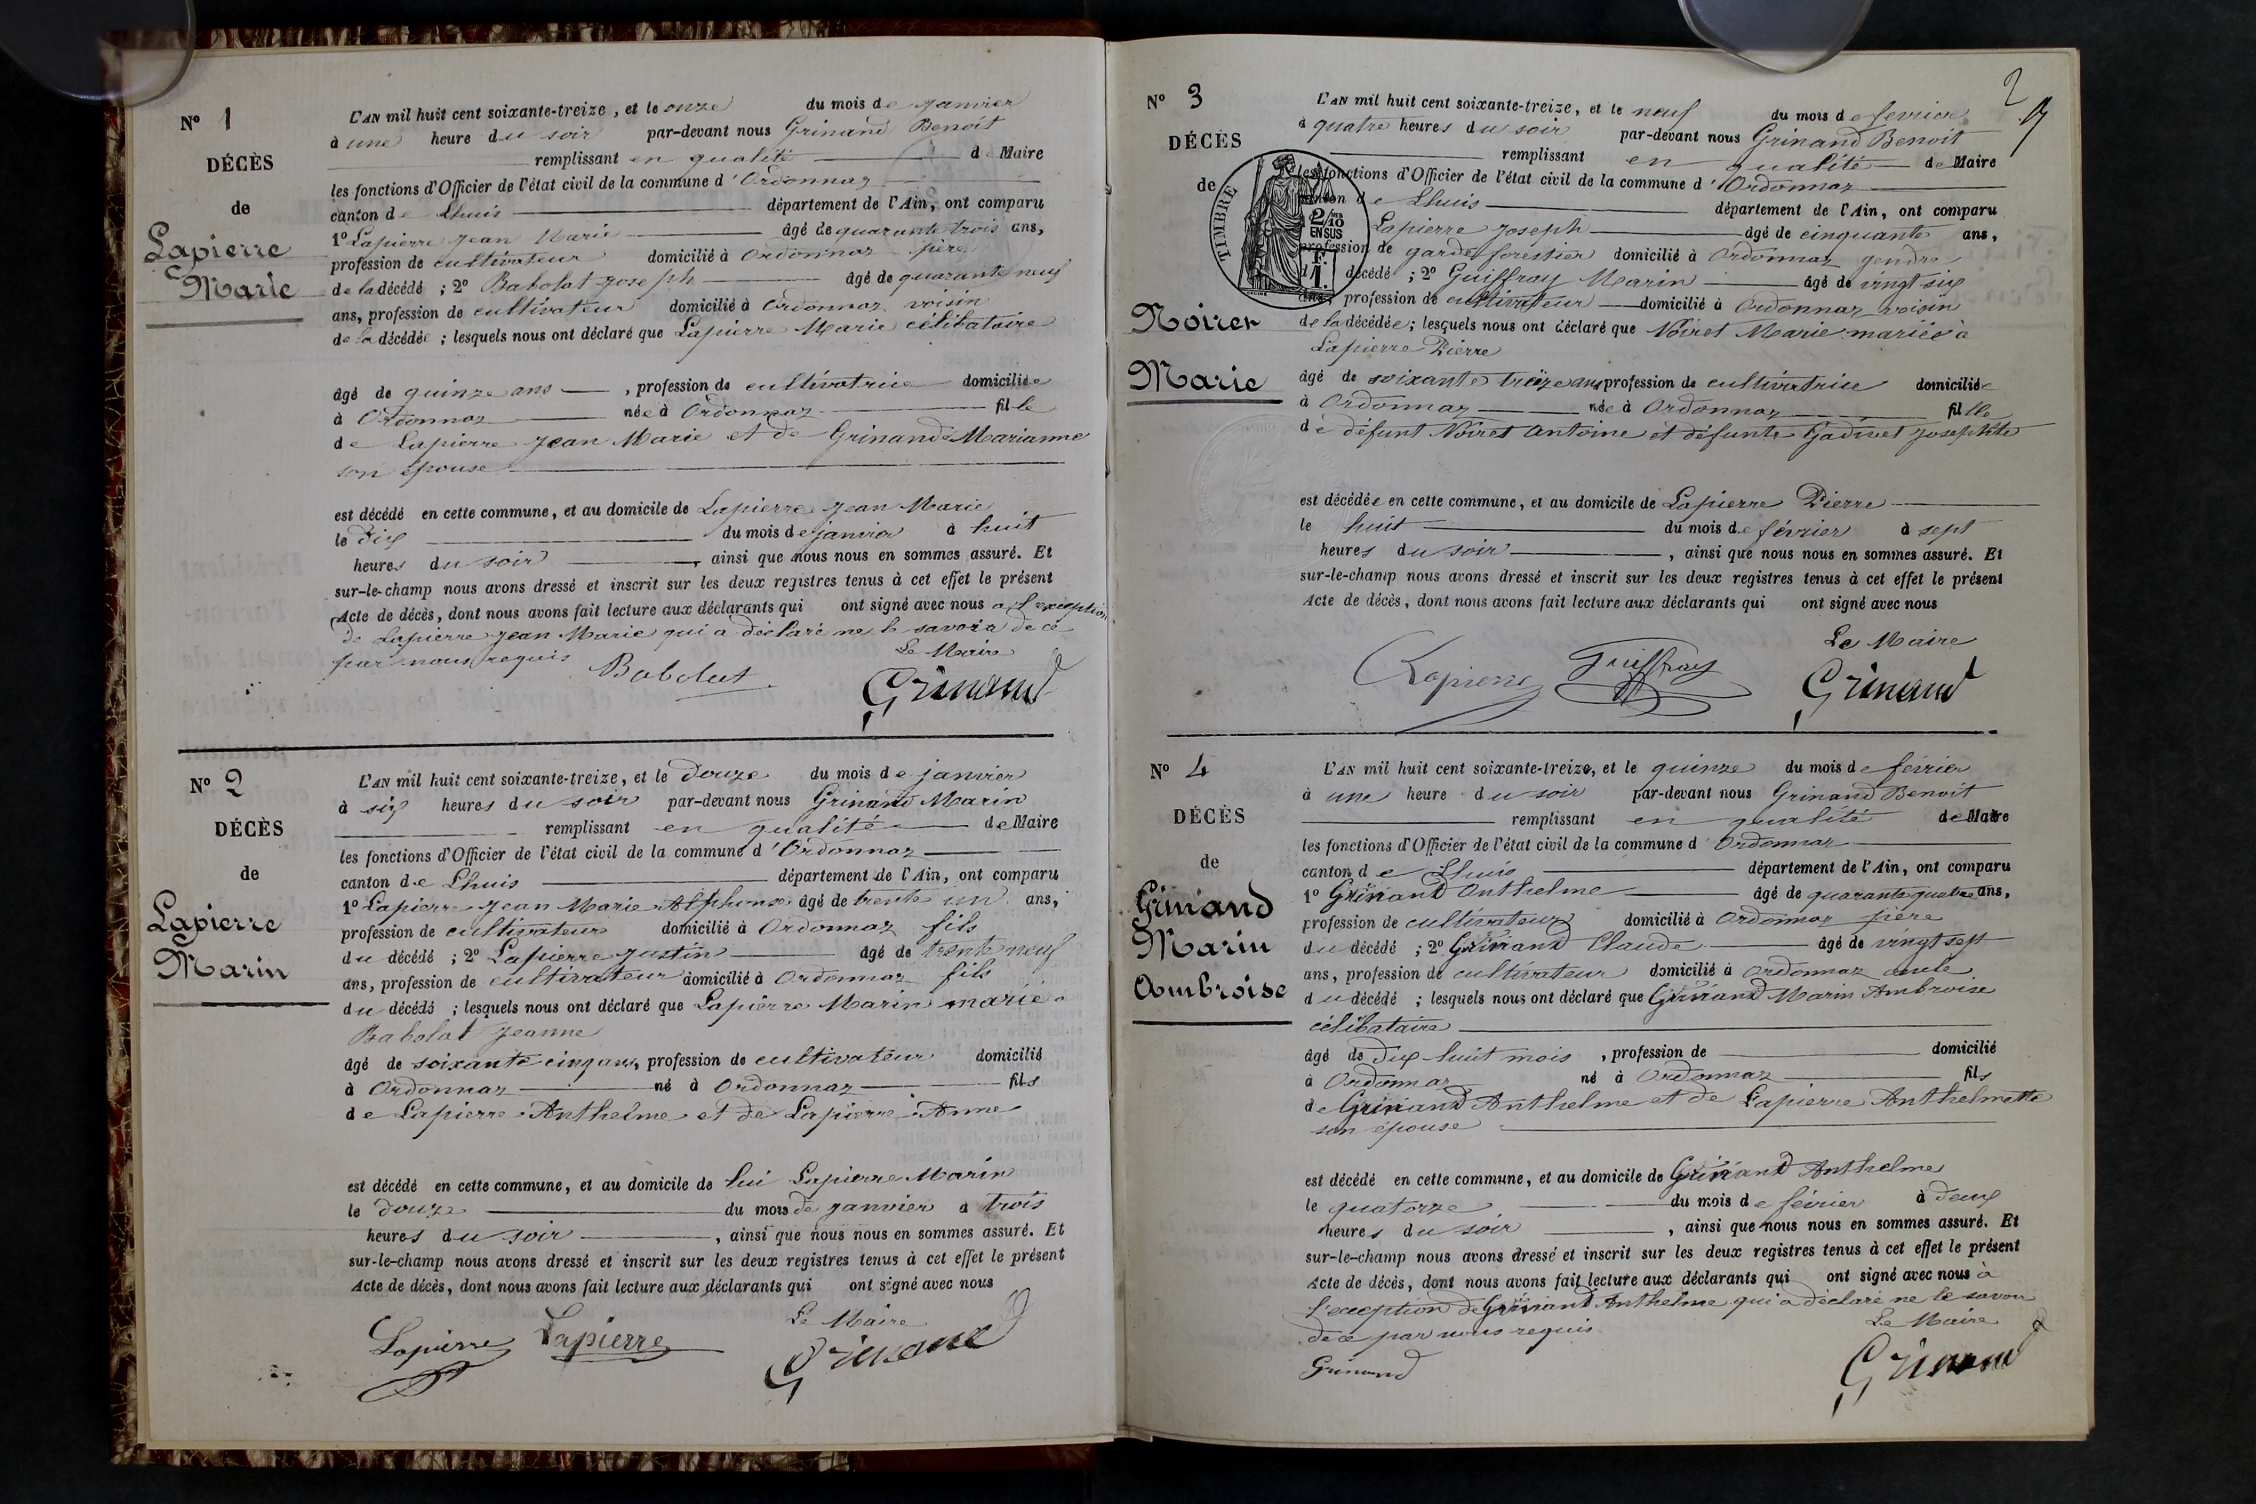 N° 1
DÉCÈS
de
Lapierre
Marie
L'AN mil huit cent soixante-treize, et le onze du mois de janvier
à une heure du soir par-devant nous Grinand Benoit
remplissant en qualité de Maire
les fonctions d'Officier de l'état civil de la commune d'Ordonnaz
canton de Lhuis département de l'Ain, ont comparu
1° Lapierre Jean Marie âgé de quarante trois ans,
profession de cultivateur domicilié à Ordonnaz père
de la décédé ; 2° Babolat Joseph âgé de quarante neuf
ans, profession de cultivateur domicilié à Ordonnaz voisin
de la décédée ; lesquels nous ont déclaré que Lapierre Marie célibataire
âgé de quinze ans, profession de cultivatrice domiciliée
à Ordonnaz née à Ordonnaz fille
de Lapierre Jean Marie et de Grinand Marianne
son épouse
est décédé en cette commune, et au domicile de Lapierre Jean Marie
le dix du mois de janvier à huit
heures du soir, ainsi que nous nous en sommes assuré. Et
sur-le-champ nous avons dressé et inscrit sur les deux registres tenus à cet effet le présent
Acte de décès, dont nous avons fait lecture aux déclarants qui ont signé avec nous a l'exception
de Lapierre Jean Marie qui a déclaré ne le savoir de ce
par nous requis
Le Maire
Babolat Grinand
N° 2
DÉCÈS
de
Lapierre
Marin
L'AN mil huit cent soixante-treize, et le douze du mois de janvier
à six heures du soir par-devant nous Grinand Marin
remplissant en qualité de Maire
les fonctions d'Officier de l'état civil de la commune d'Ordonnaz
canton de Lhuis département de l'Ain, ont comparu
1° Lapierre Jean Marie Alphonse âgé de trente un ans,
profession de cultivateur domicilié à Ordonnaz fils
du décédé ; 2° Lapierre Justin âgé de trente neuf
ans, profession de cultivateur domicilié à Ordonnaz fils
du décédé ; lesquels nous ont déclaré que Lapierre Marin marié à
Babolat Jeanne
âgé de soixante cinq ans, profession de cultivateur domicilié
à Ordonnaz né à Ordonnaz fils
de Lapierre Anthelme et de Lapierre Anne
est décédé en cette commune, et au domicile de lui Lapierre Marin
le douze du mois de janvier à trois
heures du soir, ainsi que nous nous en sommes assuré. Et
sur-le-champ nous avons dressé et inscrit sur les deux registres tenus à cet effet le présent
Acte de décès, dont nous avons fait lecture aux déclarants qui ont signé avec nous
Le Maire
Lapierre Lapierre Grinand
2
N° 3
DÉCÈS
de
Noiret
Marie
TIMBRE
2/10
EN SUS
1 F.
L'AN mil huit cent soixante-treize, et le neuf du mois de fevrier
à quatre heures du soir par-devant nous Grinand Benoit
remplissant en qualité de Maire
les fonctions d'Officier de l'état civil de la commune d'Ordonnaz
canton de Lhuis département de l'Ain, ont comparu
Lapierre Joseph âgé de cinquante ans,
profession de garde forestier domicilié à Ordonnaz gendre
décédé ; 2° Guiffray Marin âgé de vingt six
ans, profession de cultivateur domicilié à Ordonnaz voisin
de la décédée ; lesquels nous ont déclaré que Noiret Marie mariée à
Lapierre Pierre
âgé de soixante treize ans profession de cultivatrice domiciliée
à Ordonnaz née à Ordonnaz fille
de défunt Noiret Antoine et défunte Gadinet Josephte
est décédée en cette commune, et au domicile de Lapierre Pierre
le huit du mois de février à sept
heures du soir, ainsi que nous nous en sommes assuré. Et
sur-le-champ nous avons dressé et inscrit sur les deux registres tenus à cet effet le présent
Acte de décès, dont nous avons fait lecture aux déclarants qui ont signé avec nous
Le Maire
Lapierre Guiffray Grinand
N° 4
DÉCÈS
de
Grinand
Marin
Ambroise
L'AN mil huit cent soixante-treize, et le quinze du mois de février
à une heure du soir par-devant nous Grinand Benoit
remplissant en qualité de Maire
les fonctions d'Officier de l'état civil de la commune d'Ordonnaz
canton de Lhuis département de l'Ain, ont comparu
1° Grinand Anthelme âgé de quarante quatre ans,
profession de cultivateur domicilié à Ordonnaz père
du décédé ; 2° Grinand Claude âgé de vingt sept
ans, profession de cultivateur domicilié à Ordonnaz oncle
du décédé ; lesquels nous ont déclaré que Grinand Marin Ambroise
célibataire
âgé de dix huit mois, profession de domicilié
à Ordonnaz né à Ordonnaz fils
de Grinand Anthelme et de Lapierre Anthelmette
son épouse
est décédé en cette commune, et au domicile de Grinand Anthelme
le quatorze du mois de février à deux
heures du soir, ainsi que nous nous en sommes assuré. Et
sur-le-champ nous avons dressé et inscrit sur les deux registres tenus à cet effet le présent
Acte de décès, dont nous avons fait lecture aux déclarants qui ont signé avec nous à
l'exception de Grinand Anthelme qui a déclaré ne le savoir
de ce par nous requis
Le Maire
Grinand Grinand